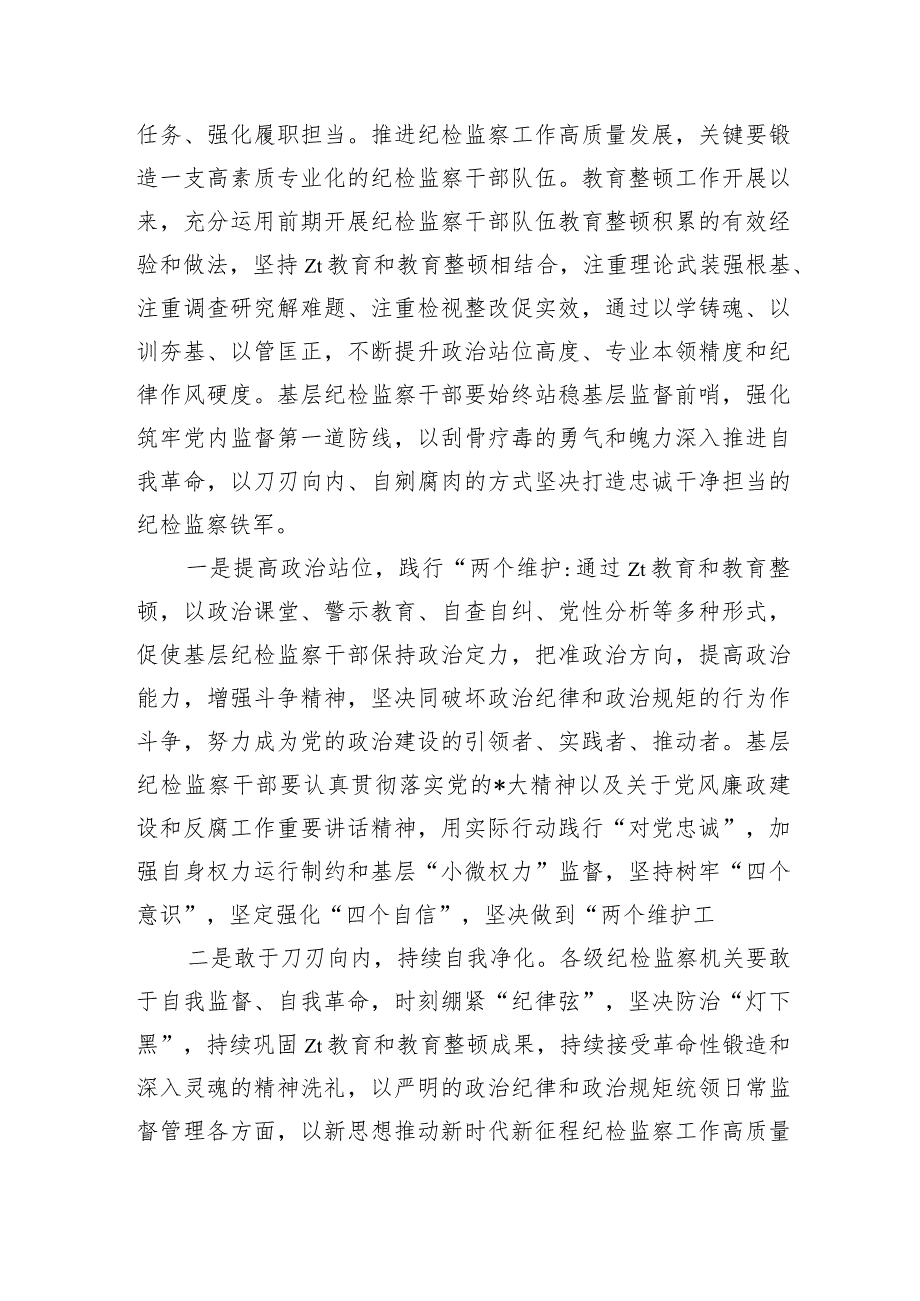 任务、强化履职担当。推进纪检监察工作高质量发展，关键要锻
造一支高素质专业化的纪检监察干部队伍。教育整顿工作开展以
来，充分运用前期开展纪检监察干部队伍教育整顿积累的有效经
验和做法，坚持Zt教育和教育整顿相结合，注重理论武装强根基、
注重调查研究解难题、注重检视整改促实效，通过以学铸魂、以
训夯基、以管匡正，不断提升政治站位高度、专业本领精度和纪
律作风硬度。基层纪检监察干部要始终站稳基层监督前哨，强化
筑牢党内监督第一道防线，以刮骨疗毒的勇气和魄力深入推进自
我革命，以刀刃向内、自剜腐肉的方式坚决打造忠诚干净担当的
纪检监察铁军。
一是提高政治站位，践行“两个维护:通过Zt教育和教育整
顿，以政治课堂、警示教育、自查自纠、党性分析等多种形式，
促使基层纪检监察干部保持政治定力，把准政治方向，提高政治
能力，增强斗争精神，坚决同破坏政治纪律和政治规矩的行为作
斗争，努力成为党的政治建设的引领者、实践者、推动者。基层
纪检监察干部要认真贯彻落实党的*大精神以及关于党风廉政建
设和反腐工作重要讲话精神，用实际行动践行“对党忠诚”，加
强自身权力运行制约和基层“小微权力”监督，坚持树牢“四个
意识”，坚定强化“四个自信”，坚决做到“两个维护工
二是敢于刀刃向内，持续自我净化。各级纪检监察机关要敢
于自我监督、自我革命，时刻绷紧“纪律弦”，坚决防治“灯下
黑”，持续巩固Zt教育和教育整顿成果，持续接受革命性锻造和
深入灵魂的精神洗礼，以严明的政治纪律和政治规矩统领日常监
督管理各方面，以新思想推动新时代新征程纪检监察工作高质量